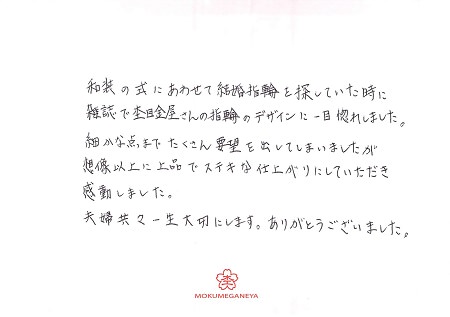 和装の式にあわせて結婚指輪を探していた時に
雑誌で杢目金屋さんの指輪のデザインに一目惚れしました。
細かな点までたくさん要望を出してしまいましたが
想像以上に上品でステキな仕上がりにしていただき
感動しました。
夫婦共々一生大切にします。ありがとうございました。
MOKUMEGANEYA